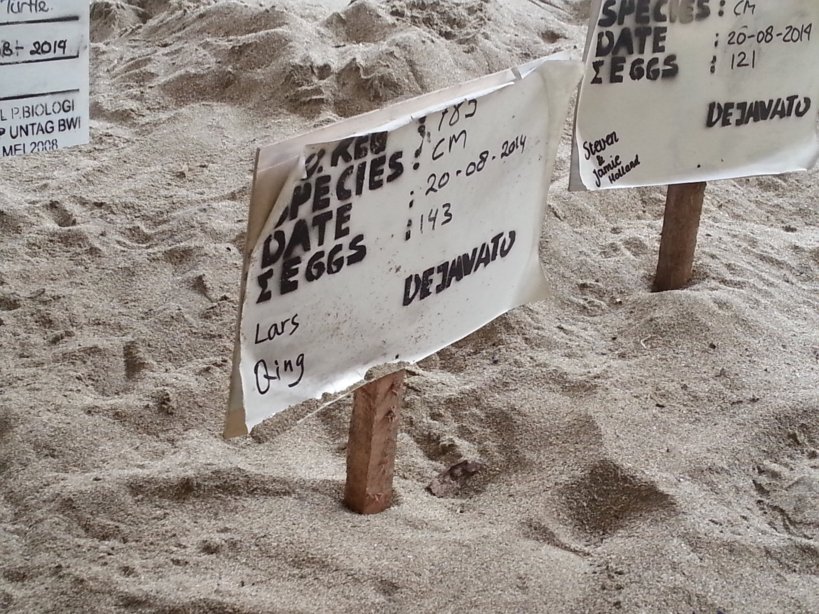 Turtle.
8-2014
L P.BIOLOGI
P UNTAG BWI
MEI 2008
. REG : 785
SPECIES : CM
DATE : 20-08-2014
Σ EGGS : 143
DEJAVATO
Lars
Qing
SPECIES : CM
DATE : 20-08-2014
Σ EGGS : 121
DEJAVATO
Steven
&
Jamie
Holland